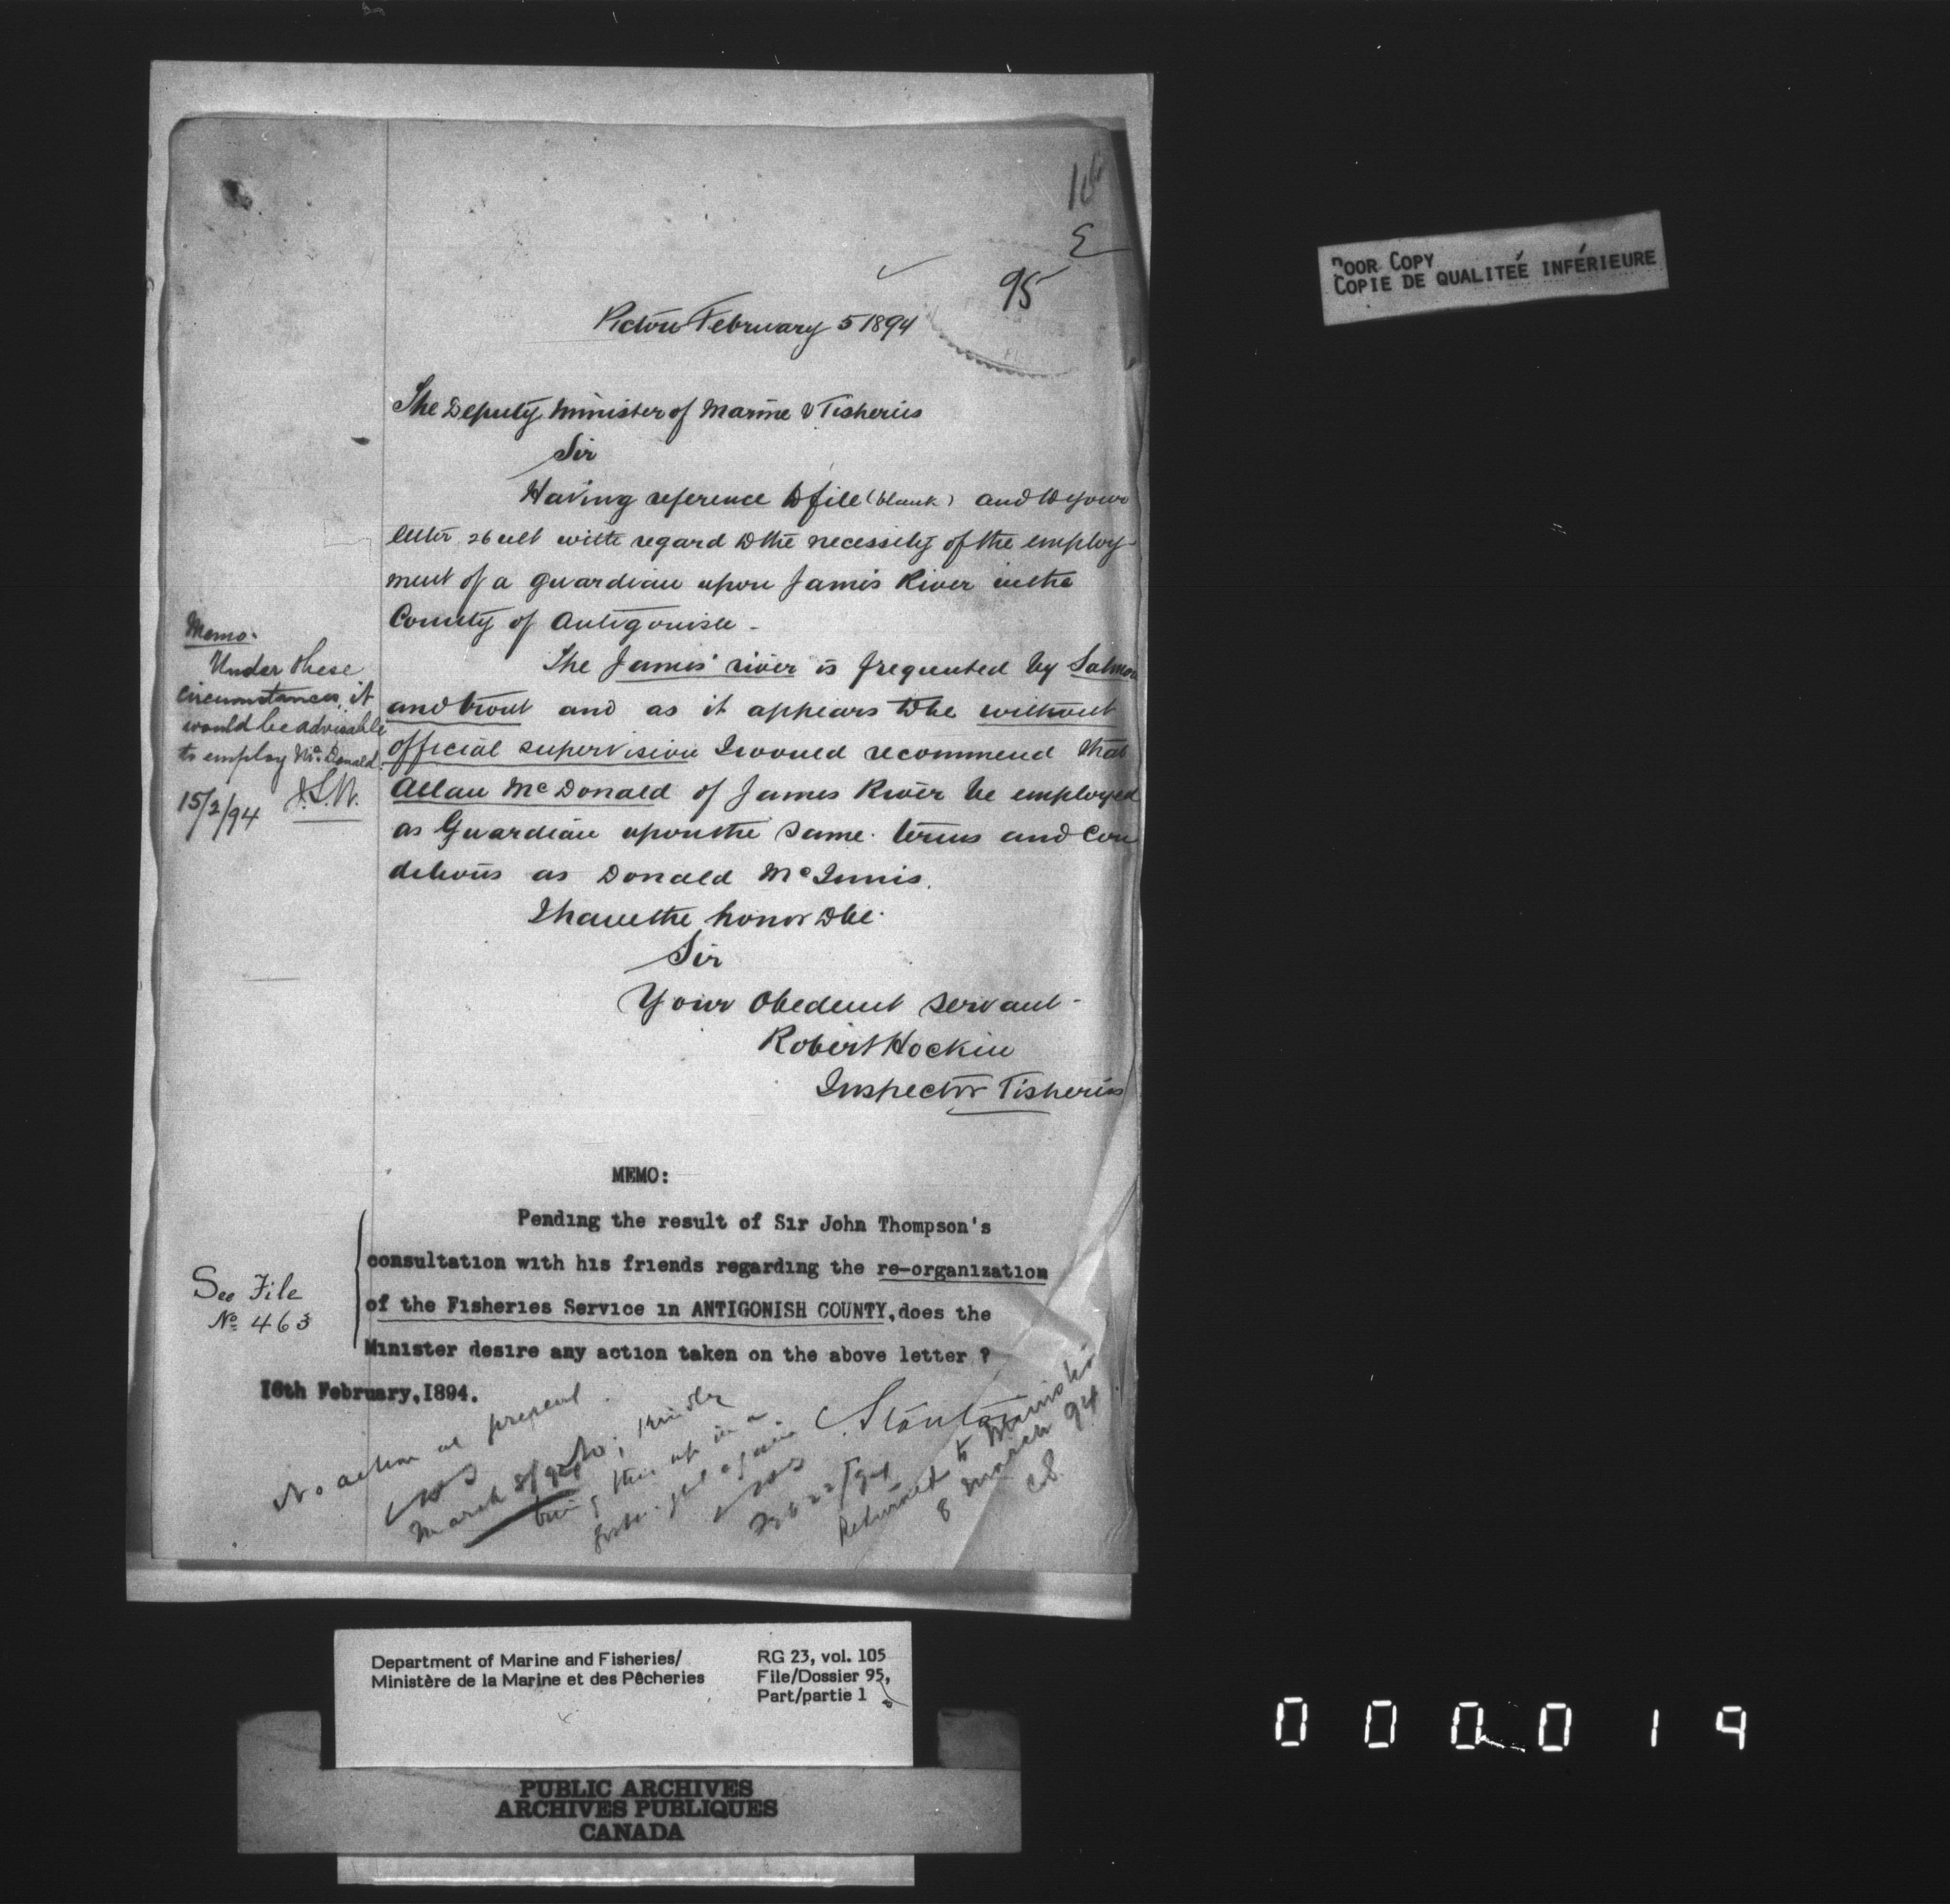 E
95
POOR COPY
COPIE DE QUALITEÉ INFÉRIEURE
Pictou February 5 1894
The Deputy Minister of Marine & Fisheries
Sir
Having reference to file (blank) and to your
letter 26 ult with regard to the necessity of the employ-
ment of a guardian upon James River in the
County of Antigonish -
The James' river is frequented by Salmon
and trout and as it appears to be without
official supervision I would recommend that
Allan McDonald of James River be employed
as Guardian upon the same terms and con
ditions as Donald McInnis.
I have the honor to be
Sir
Your Obedient servant -
Robert Hockin
Inspector Fisheries
Memo.
Under these
circumstances, it
would be advisable
to employ McDonald.
15/2/94
MEMO:
Pending the result of Sir John Thompson's
consultation with his friends regarding the re-organization
of the Fisheries Service in ANTIGONISH COUNTY, does the
Minister desire any action taken on the above letter ?
16th February, 1894.
See File
No 463
No action at present
March 8/94
No; kindly
bring this up in a
again
Feb 22/94
C. Stanton
Returned to Minister
8 March 94
CS.
Department of Marine and Fisheries/
Ministère de la Marine et des Pêcheries
RG 23, vol. 105
File/Dossier 95,
Part/partie 1
PUBLIC ARCHIVES
ARCHIVES PUBLIQUES
CANADA
000019